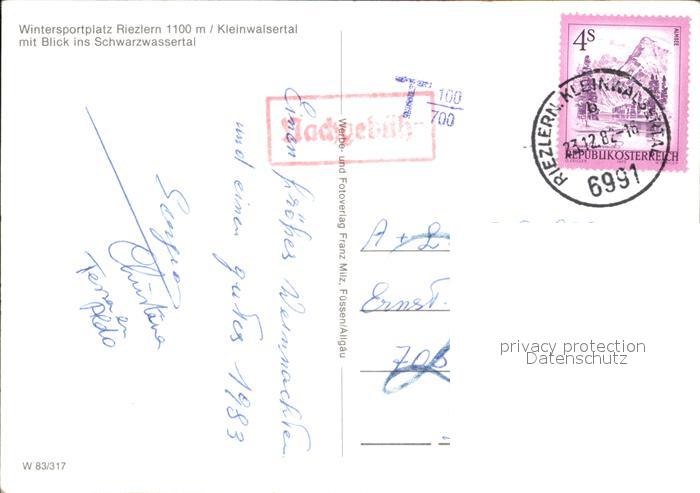 Wintersportplatz Riezlern 1100 m / Kleinwalsertal
mit Blick ins Schwarzwassertal
4S
ALMSEE
REPUBLIK ÖSTERREICH
RIEZLERN, KLEINWALSERTAL
b
23.12.82-16
6991
T 100
700
Nachgebühr
Einen frohes Weinnachten
und einen gutes 1983
Sergio
Christina
Aldo
Werbe- und Fotoverlag Franz Milz, Füssen/Allgäu
A + L.
Ernst.
privacy protection
Datenschutz
W 83/317